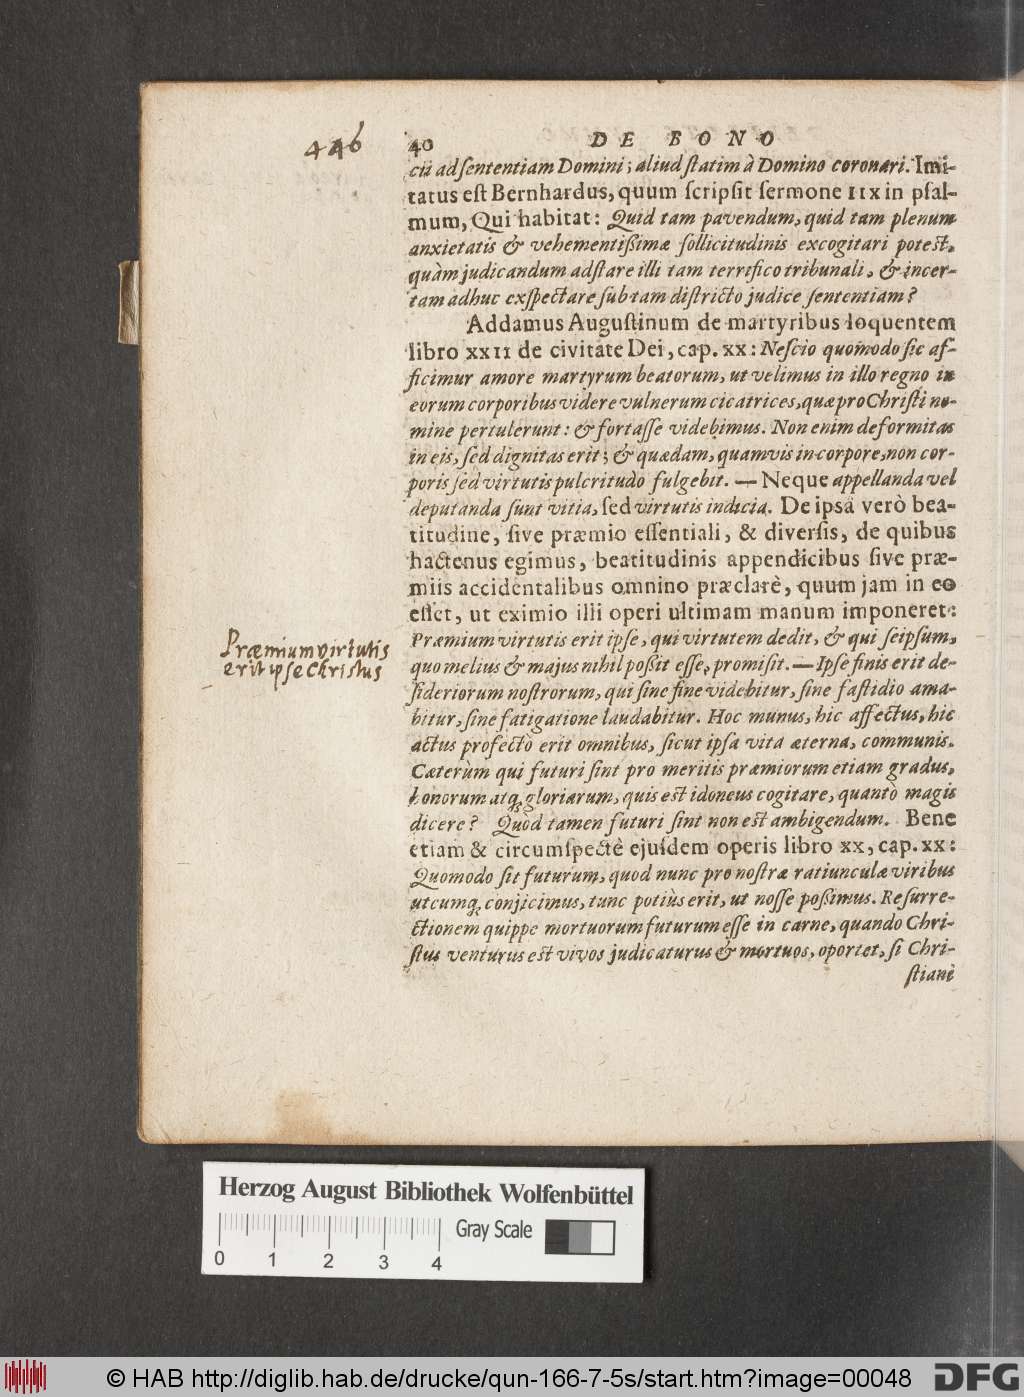 446
40 DE BONO
cii ad ſententiam Domini; aliud ſtatim à Domino coronari. Imi-
tatus eſt Bernhardus, quum ſcripſit ſermone IIX in pſal-
mum, Qui habitat: Quid tam pavendum, quid tam plenum
anxietatis & vehementißimæ ſollicitudinis excogitari poteſt,
quàm judicandum adſtare illi tam terrifico tribunali, & incer-
tam adhuc exſpectare ſub tam diſtricto judice ſententiam?
Addamus Auguſtinum de martyribus loquentem
libro XXII de civitate Dei, cap. XX: Neſcio quomodo ſic af-
ficimur amore martyrum beatorum, ut velimus in illo regno in
eorum corporibus videre vulnerum cicatrices, quæ pro Chriſti no-
mine pertulerunt: & fortaſſe videbimus. Non enim deformitas
in eis, ſed dignitas erit; & quædam, quamvis in corpore, non cor-
poris ſed virtutis pulcritudo fulgebit. — Neque appellanda vel
deputanda ſunt vitia, ſed virtutis indicia. De ipsa verò bea-
titudine, ſive præmio eſſentiali, & diverſis, de quibus
hactenus egimus, beatitudinis appendicibus ſive præ-
miis accidentalibus omnino præclarè, quum jam in eo
eſſet, ut eximio illi operi ultimam manum imponeret:
Præmium virtutis erit ipſe, qui virtutem dedit, & qui ſeipſum,
quo melius & majus nihil poßit eſſe, promiſit. — Ipſe finis erit de-
ſideriorum noſtrorum, qui ſine fine videbitur, ſine faſtidio ama-
bitur, ſine fatigatione laudabitur. Hoc munus, hic affectus, hic
actus profectò erit omnibus, ſicut ipſa vita æterna, communis.
Cæterùm qui futuri ſint pro meritis præmiorum etiam gradus,
honorum atq; gloriarum, quis eſt idoneus cogitare, quantò magis
dicere? Quòd tamen futuri ſint non eſt ambigendum. Bene
etiam & circumſpectè ejuſdem operis libro XX, cap. XX:
Quomodo ſit futurum, quod nunc pro noſtræ ratiunculæ viribus
utcumq; conjicimus, tunc potiùs erit, ut noſſe poßimus. Reſurre-
ctionem quippe mortuorum futurum eſſe in carne, quando Chri-
ſtus venturus eſt vivos judicaturus & mortuos, oportet, ſi Chri-
ſtiani
Præmium virtutis
erit ipse Christus
Herzog August Bibliothek Wolfenbüttel
Gray Scale
0 1 2 3 4
© HAB http://diglib.hab.de/drucke/qun-166-7-5s/start.htm?image=00048
DFG